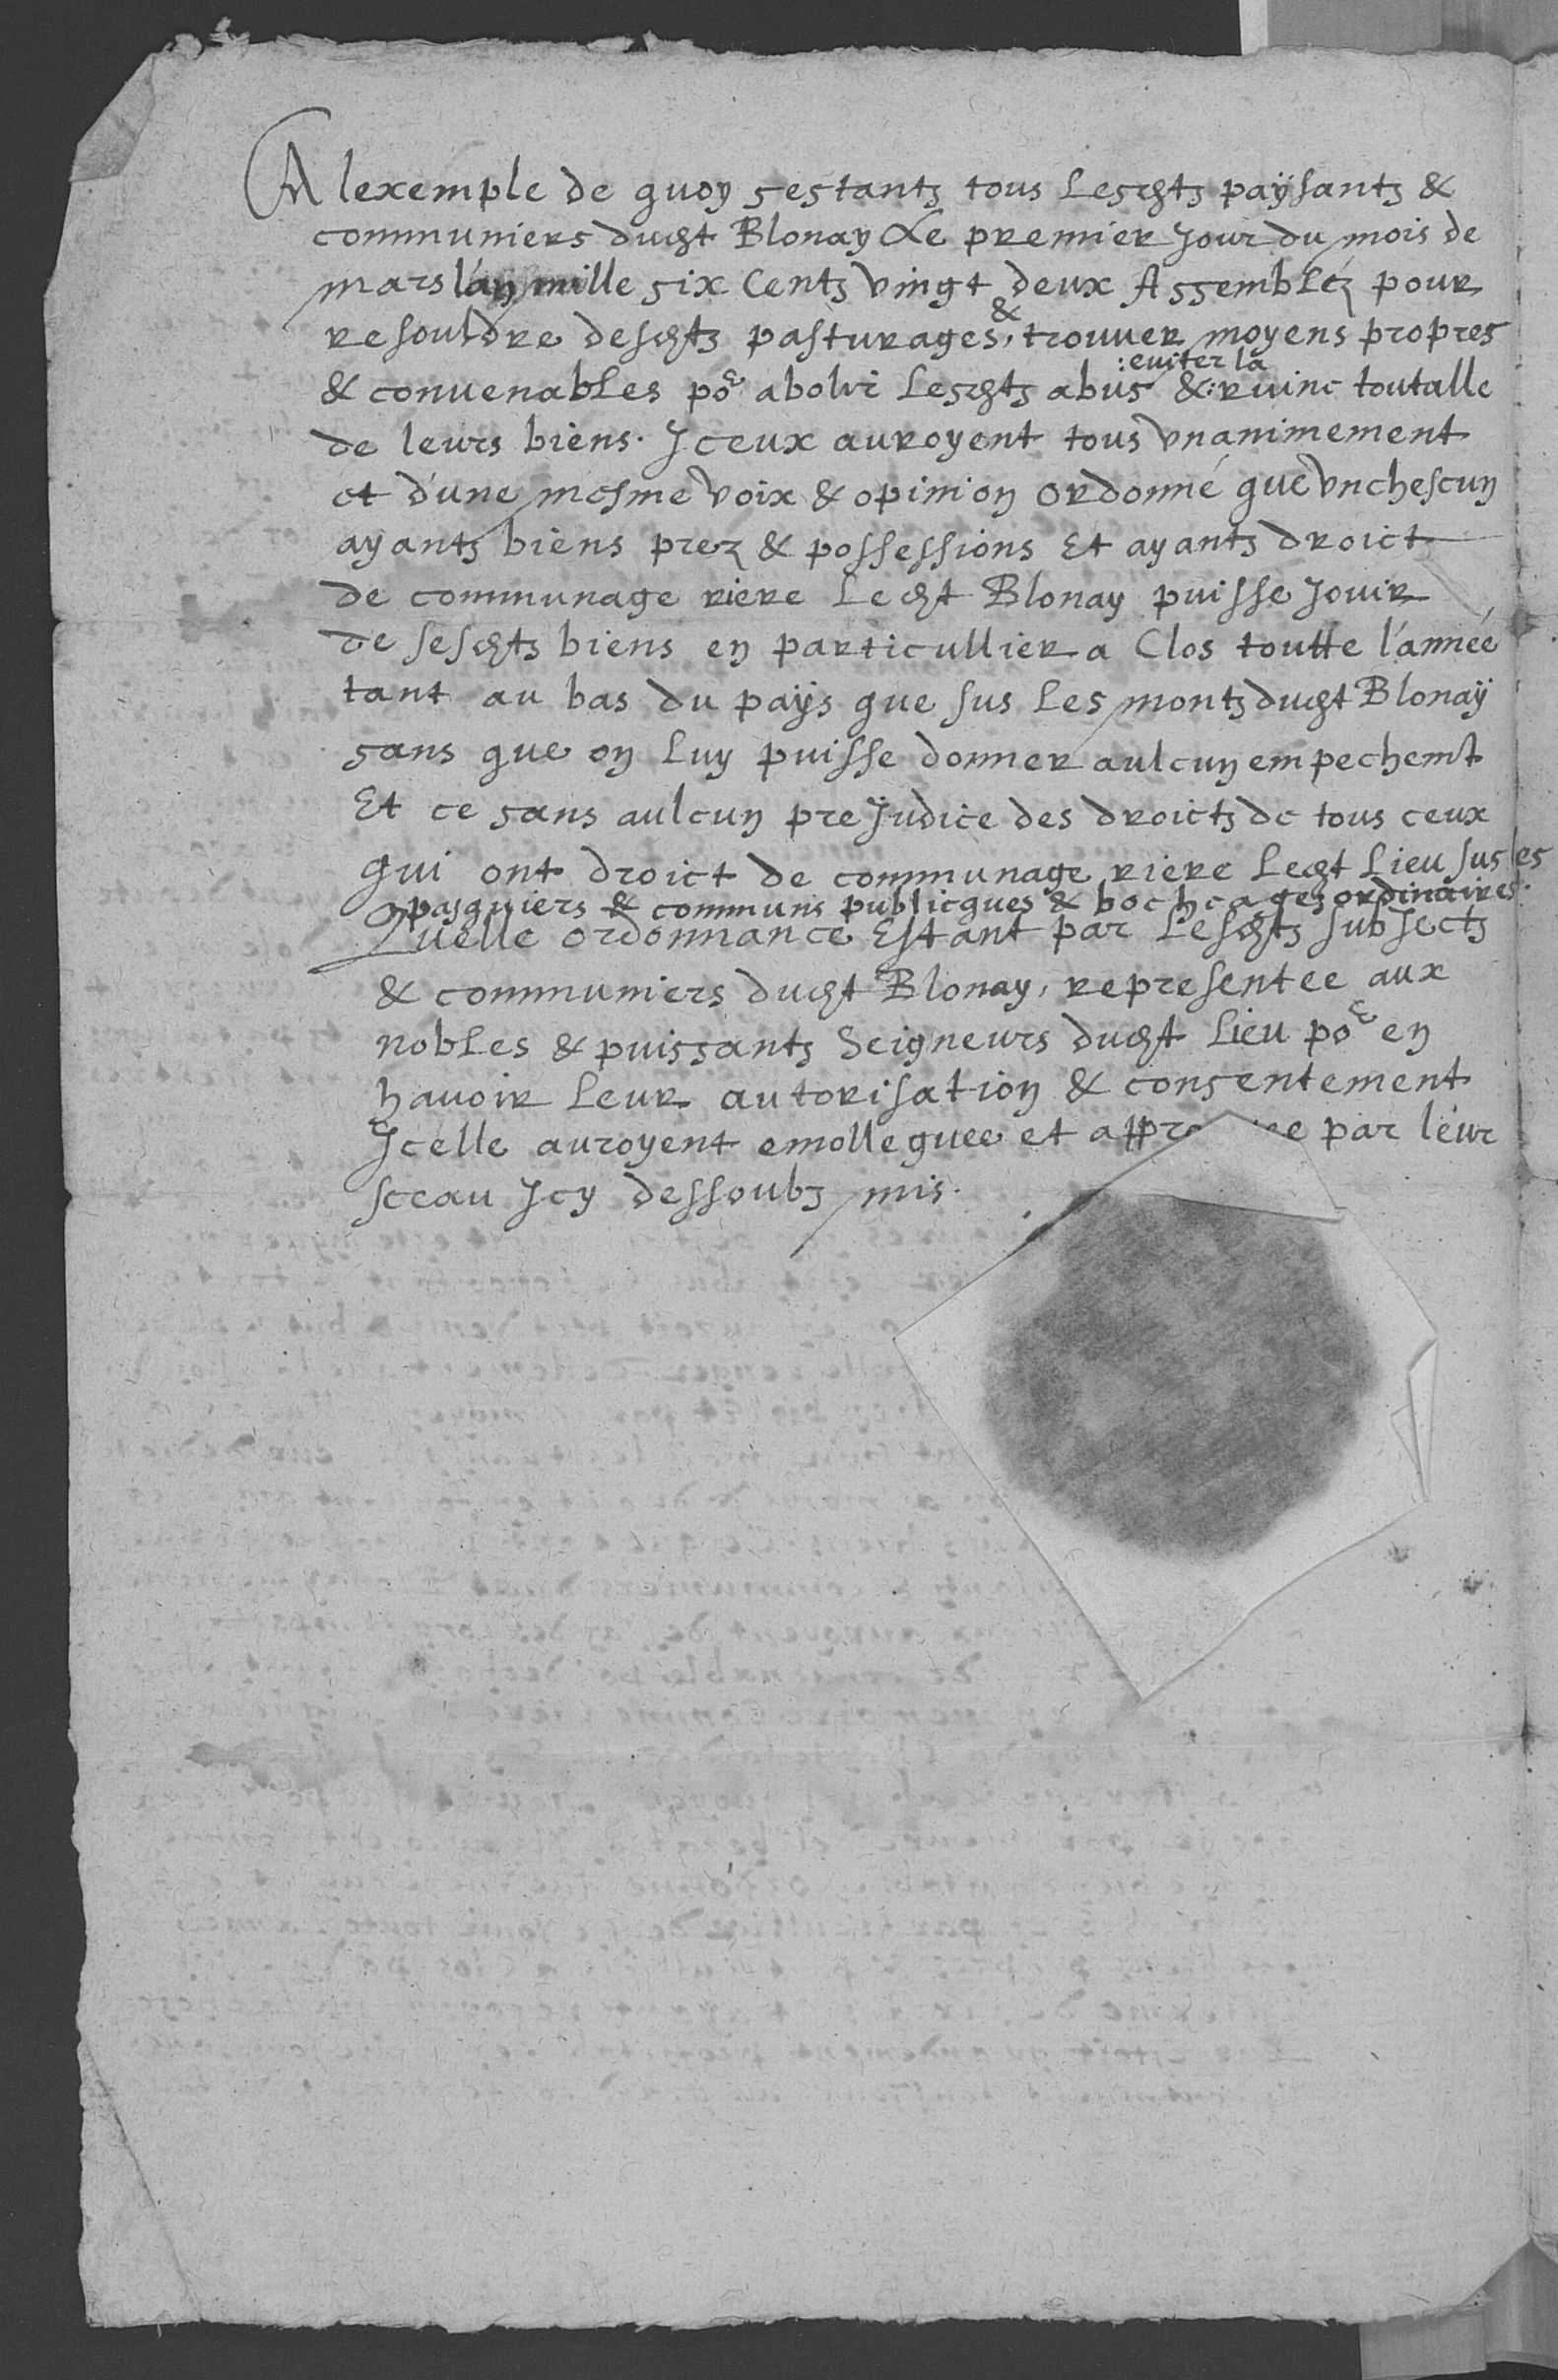 A lexemple de quoy sestants tous Lesdts paÿsants &
communiers dudt Blonay Le premier Jour du mois de
mars l'an mille six Cents vingt deux Assemblez pour
resouldre desdts pasturages, & trouver moyens propres
& convenables por abolir Lesdts abus & : eviter la : ruine toutalle
de leurs biens. Iceux auroyent tous vnanimement
et d'une mesme voix & opinion ordonné que vnchescun
ayants biens prez & possessions Et ayants droict
de communage riere Ledt Blonay puisse Jouir
de sesdts biens en particullier a Clos toutte l'année
tant au bas du paÿs que sus Les monts dudt Blonaÿ
sans que on Luy puisse donner aulcun empechemt
Et ce sans aulcun preJudice des droicts de tous ceux
qui ont droict de communage riere Ledt Lieu sus les
pasquiers & communs publicques & bochcages ordinaires.
Quelle ordonnance Estant par Lesdts subJects
& communiers dudt Blonay, representee aux
nobles & puissants Seigneurs dudt Lieu por en
havoir Leur autorisation & consentement
Icelle auroyent emolleguee et par leur
sceau Icy dessoubs mis.